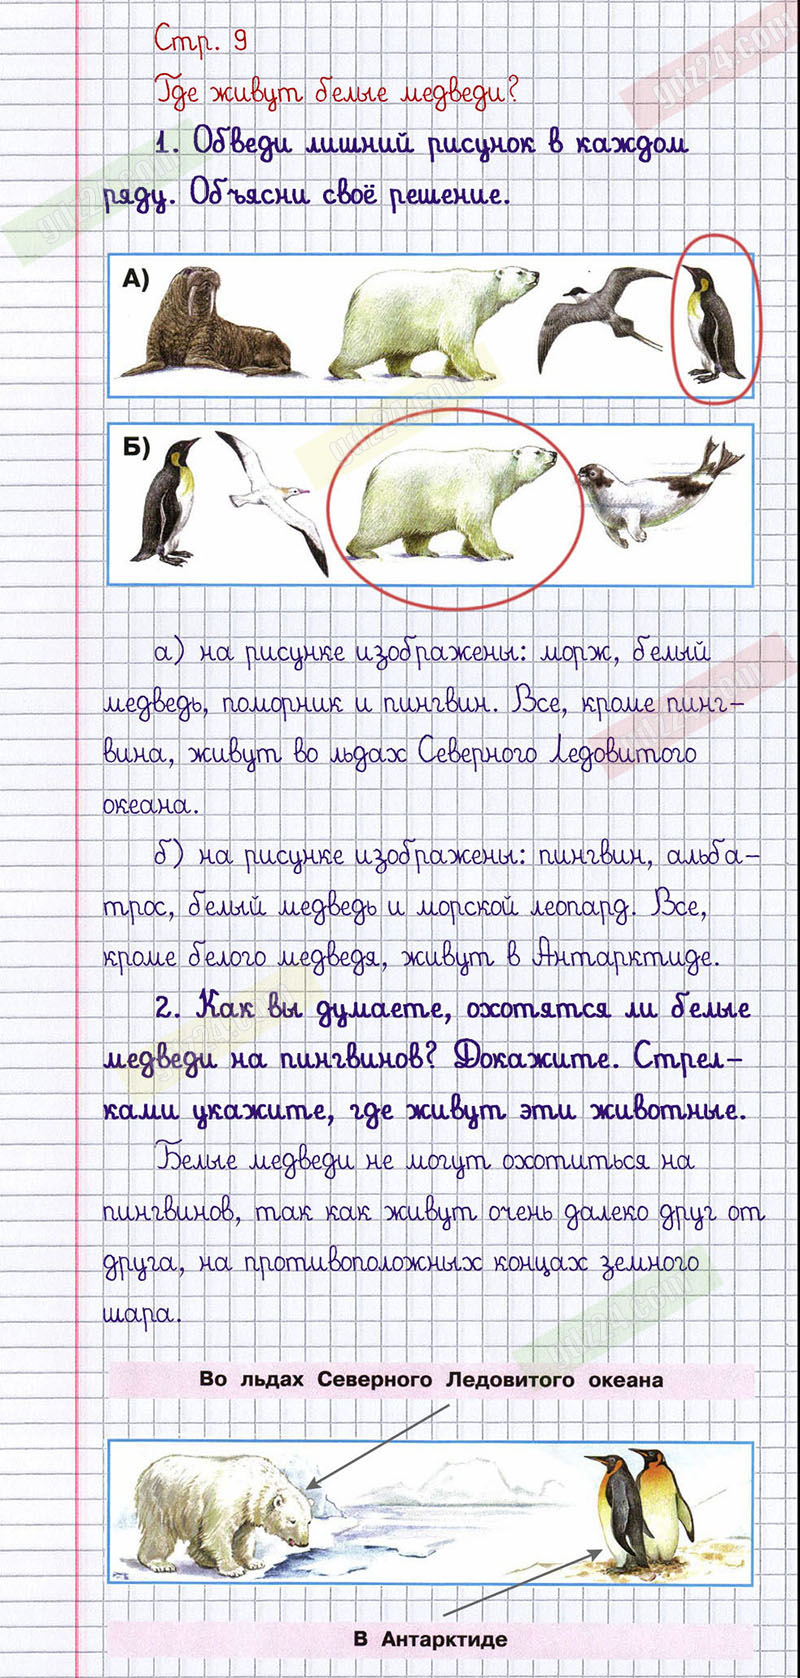 Стр. 9
Где живут белые медведи?
1. Обведи лишний рисунок в каждом
ряду. Объясни своё решение.
А)
Б)
а) на рисунке изображены: морж, белый
медведь, поморник и пингвин. Все, кроме пинг-
вина, живут во льдах Северного Ледовитого
океана.
б) на рисунке изображены: пингвин, альба-
трос, белый медведь и морской леопард. Все,
кроме белого медведя, живут в Антарктиде.
2. Как вы думаете, охотятся ли белые
медведи на пингвинов? Докажите. Стрел-
ками укажите, где живут эти животные.
Белые медведи не могут охотиться на
пингвинов, так как живут очень далеко друг от
друга, на противоположных концах земного
шара.
Во льдах Северного Ледовитого океана
В Антарктиде
gdz24.com
gdz24.com
gdz24.com
gdz24.com
gdz24.com
gdz24.com